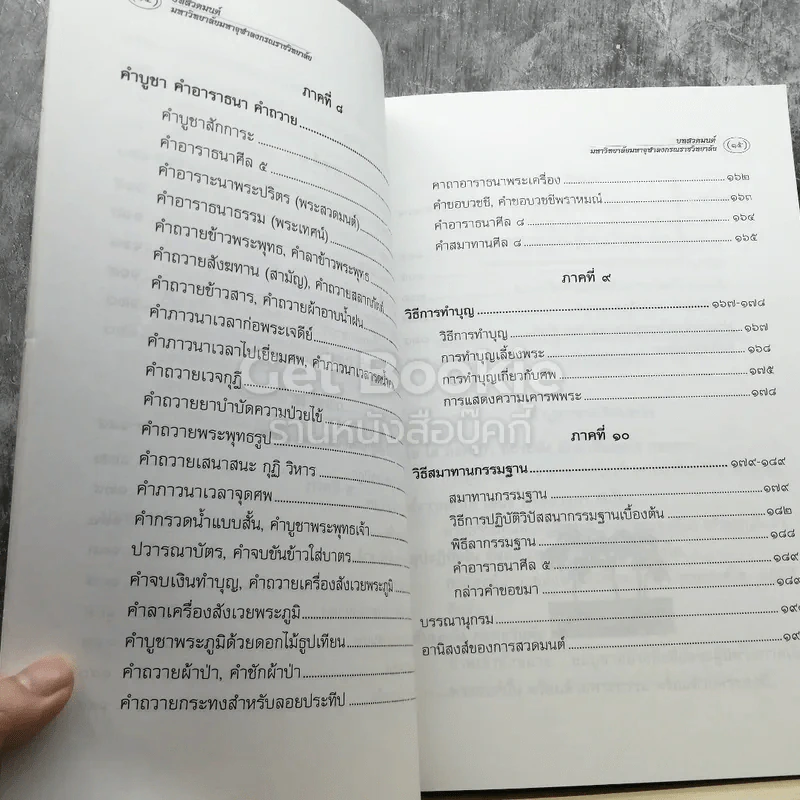 บทสวดมนต์
มหาวิทยาลัยมหาจุฬาลงกรณราชวิทยาลัย
ภาคที่ ๘
คำบูชา คำอาราธนา คำถวาย
คำบูชาสักการะ
คำอาราธนาศีล ๕
คำอาราะนาพระปริตร (พระสวดมนต์)
คำอาราธนาธรรม (พระเทศน์)
คำถวายข้าวพระพุทธ, คำลาข้าวพระพุทธ
คำถวายสังฆทาน (สามัญ), คำถวายสลากภัตต์
คำถวายข้าวสาร, คำถวายผ้าอาบน้ำฝน
คำภาวนาเวลาก่อพระเจดีย์
คำภาวนาเวลาไปเยี่ยมศพ, คำภาวนาเวลารดน้ำศพ
คำถวายเวจกุฎี
คำถวายยาบำบัดความป่วยไข้
คำถวายพระพุทธรูป
คำถวายเสนาสนะ กุฏิ วิหาร
คำภาวนาเวลาจุดศพ
คำกรวดน้ำแบบสั้น, คำบูชาพระพุทธเจ้า
ปวารณาบัตร, คำจบขันข้าวใส่บาตร
คำจบเงินทำบุญ, คำถวายเครื่องสังเวยพระภูมิ
คำลาเครื่องสังเวยพระภูมิ
คำบูชาพระภูมิด้วยดอกไม้ธูปเทียน
คำถวายผ้าป่า, คำชักผ้าป่า
คำถวายกระทงสำหรับลอยประทีป
บทสวดมนต์
มหาวิทยาลัยมหาจุฬาลงกรณราชวิทยาลัย (๑๕)
คาถาอาราธนาพระเครื่อง ๑๖๒
คำขอบวชชี, คำขอบวชชีพราหมณ์ ๑๖๓
คำอาราธนาศีล ๘ ๑๖๔
คำสมาทานศีล ๘ ๑๖๕
ภาคที่ ๙
วิธีการทำบุญ ๑๖๗-๑๗๘
วิธีการทำบุญ ๑๖๗
การทำบุญเลี้ยงพระ ๑๖๘
การทำบุญเกี่ยวกับศพ ๑๗๕
การแสดงความเคารพพระ ๑๗๘
ภาคที่ ๑๐
วิธีสมาทานกรรมฐาน ๑๗๙-๑๘๙
สมาทานกรรมฐาน ๑๗๙
วิธีการปฏิบัติวิปัสสนากรรมฐานเบื้องต้น ๑๘๒
พิธีลากรรมฐาน ๑๘๘
คำอาราธนาศีล ๕ ๑๘๙
กล่าวคำขอขมา ๑๘๙
บรรณานุกรม
อานิสงส์ของการสวดมนต์
Get Bookie
ร้านหนังสือบุ๊คกี้